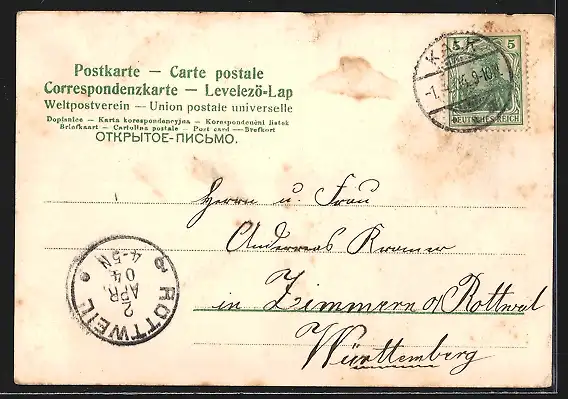 Postkarte — Carte postale
Correspondenzkarte — Levelező-Lap
Weltpostverein — Union postale universelle
Dopisnice — Karta korespondencyjna — Korespondenčni listek
Briefkaart — Cartolina postale — Post card — Brefkort
ОТКРЫТОЕ-ПИСЬМО.
5 5
DEUTSCHES REICH
Herrn u. Frau
Andereas Kramer
in Zimmern o/Rottwal
Württemberg
ROTTWEIL
2
APR.
04
4-5N